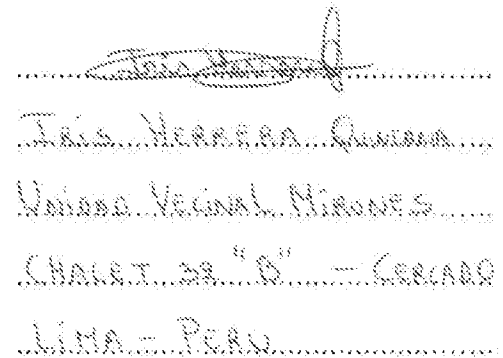 Iris Herrera
IRIS HERRERA
UNIDAD VECINAL MIRONES
CHALET 32 "B" — CERCADO
LIMA — PERU